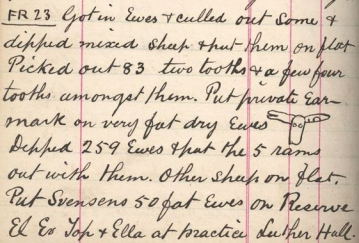 FR 23 Got in Ewes & culled out some &
dipped mixed sheep & put them on flat
Picked out 83 two tooths & a few four
tooths amongst them. Put private Ear-
mark on very fat dry Ewes
Dipped 259 Ewes & put the 5 rams
out with them. Other sheep on flat.
Put Svensens 50 fat Ewes on Reserve
El Ev Top & Ella at practice Luther Hall.